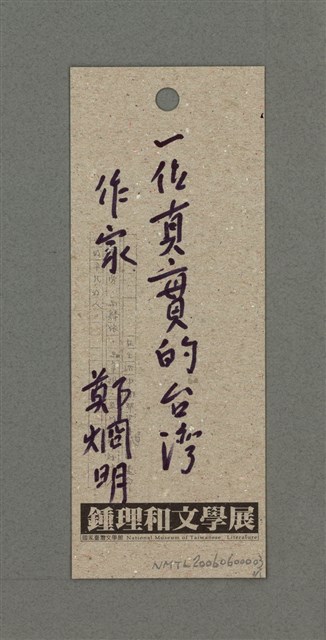 一位真實的台灣
作家
鄭烱明
鍾理和文學展
國家臺灣文學館 National Museum of Taiwanese Literature
NMTL20060600003